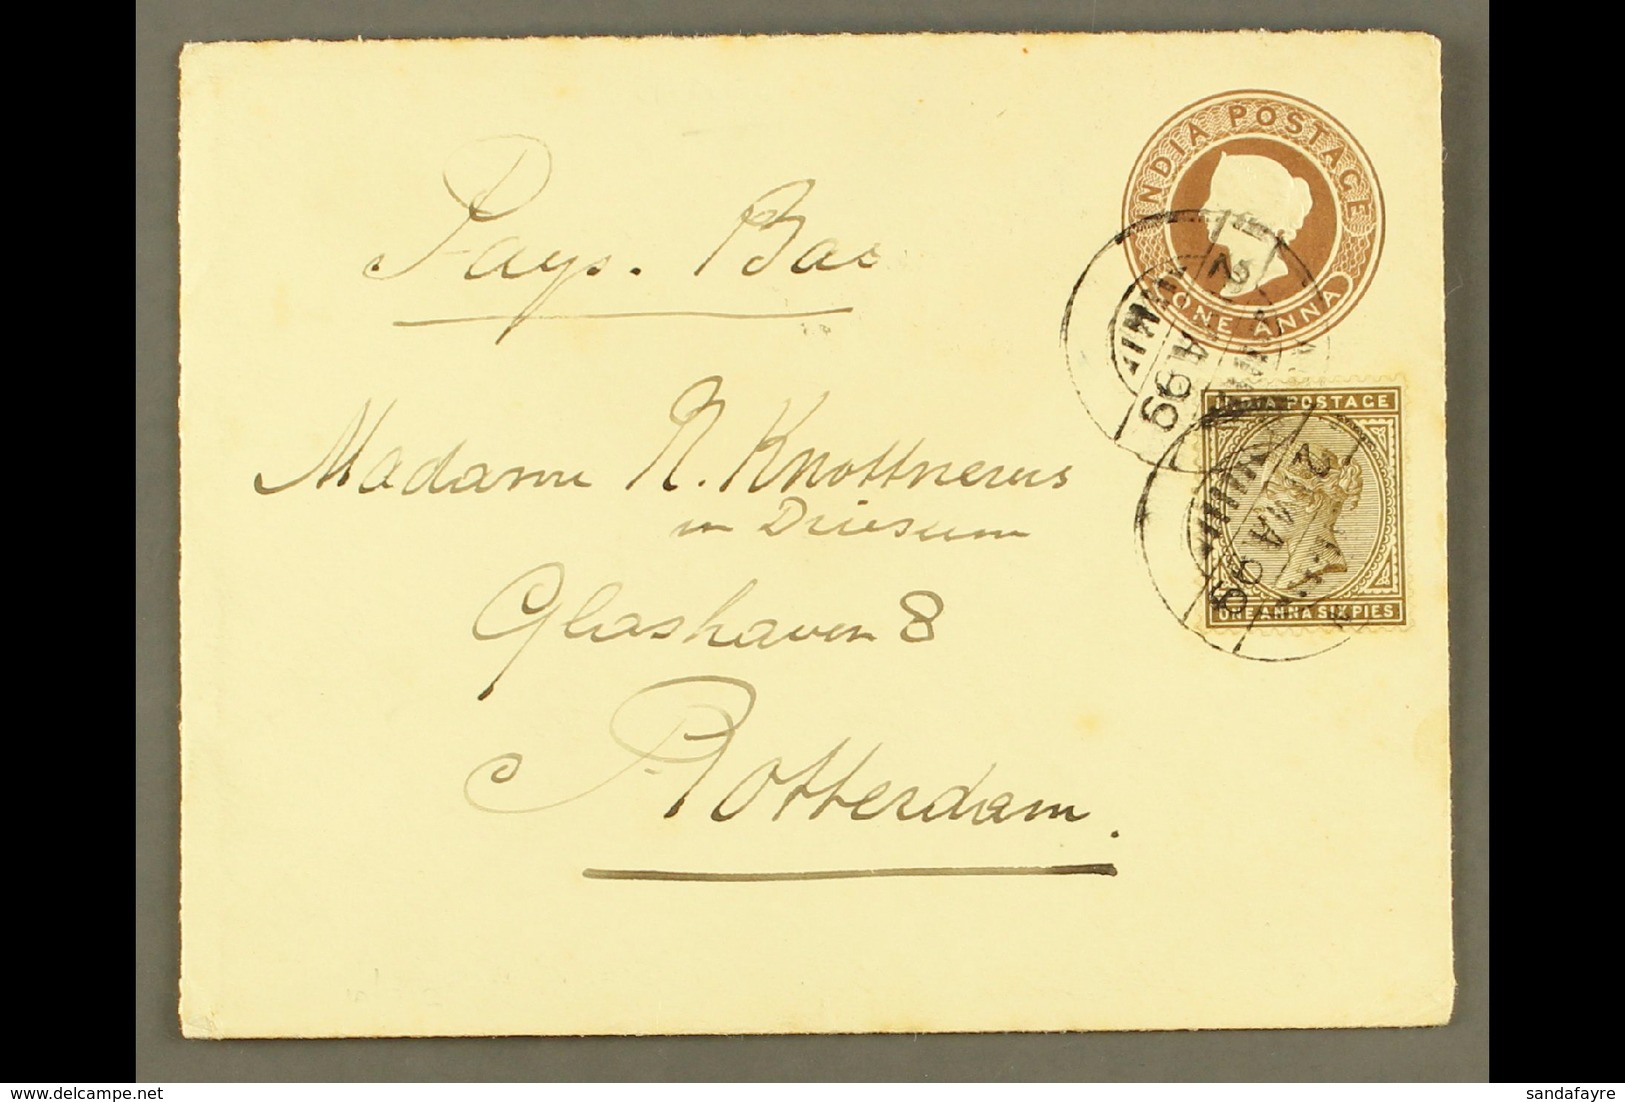 INDIA POSTAGE
ONE ANNA
Pays. Bas
2 MA 99
INDIA POSTAGE
ONE ANNA SIX PIES
2 MA 99
Madame N. Knottnerus
Glashaven 8
Rotterdam.
sandafayre